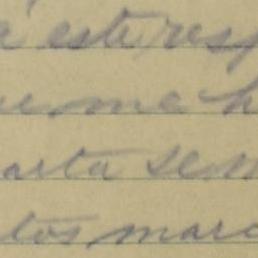 a este resp
ue me h
arta sem
tos marc